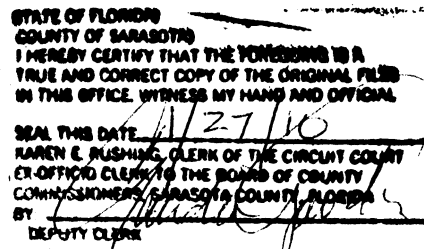 STATE OF FLORIDA)
COUNTY OF SARASOTA)
I HEREBY CERTIFY THAT THE FOREGOING IS A
TRUE AND CORRECT COPY OF THE ORIGINAL FILED
IN THIS OFFICE. WITNESS MY HAND AND OFFICIAL
SEAL THIS DATE 1/27/10
KAREN E. RUSHING, CLERK OF THE CIRCUIT COURT
EX-OFFICIO CLERK TO THE BOARD OF COUNTY
COMMISSIONERS, SARASOTA COUNTY, FLORIDA
BY
DEPUTY CLERK